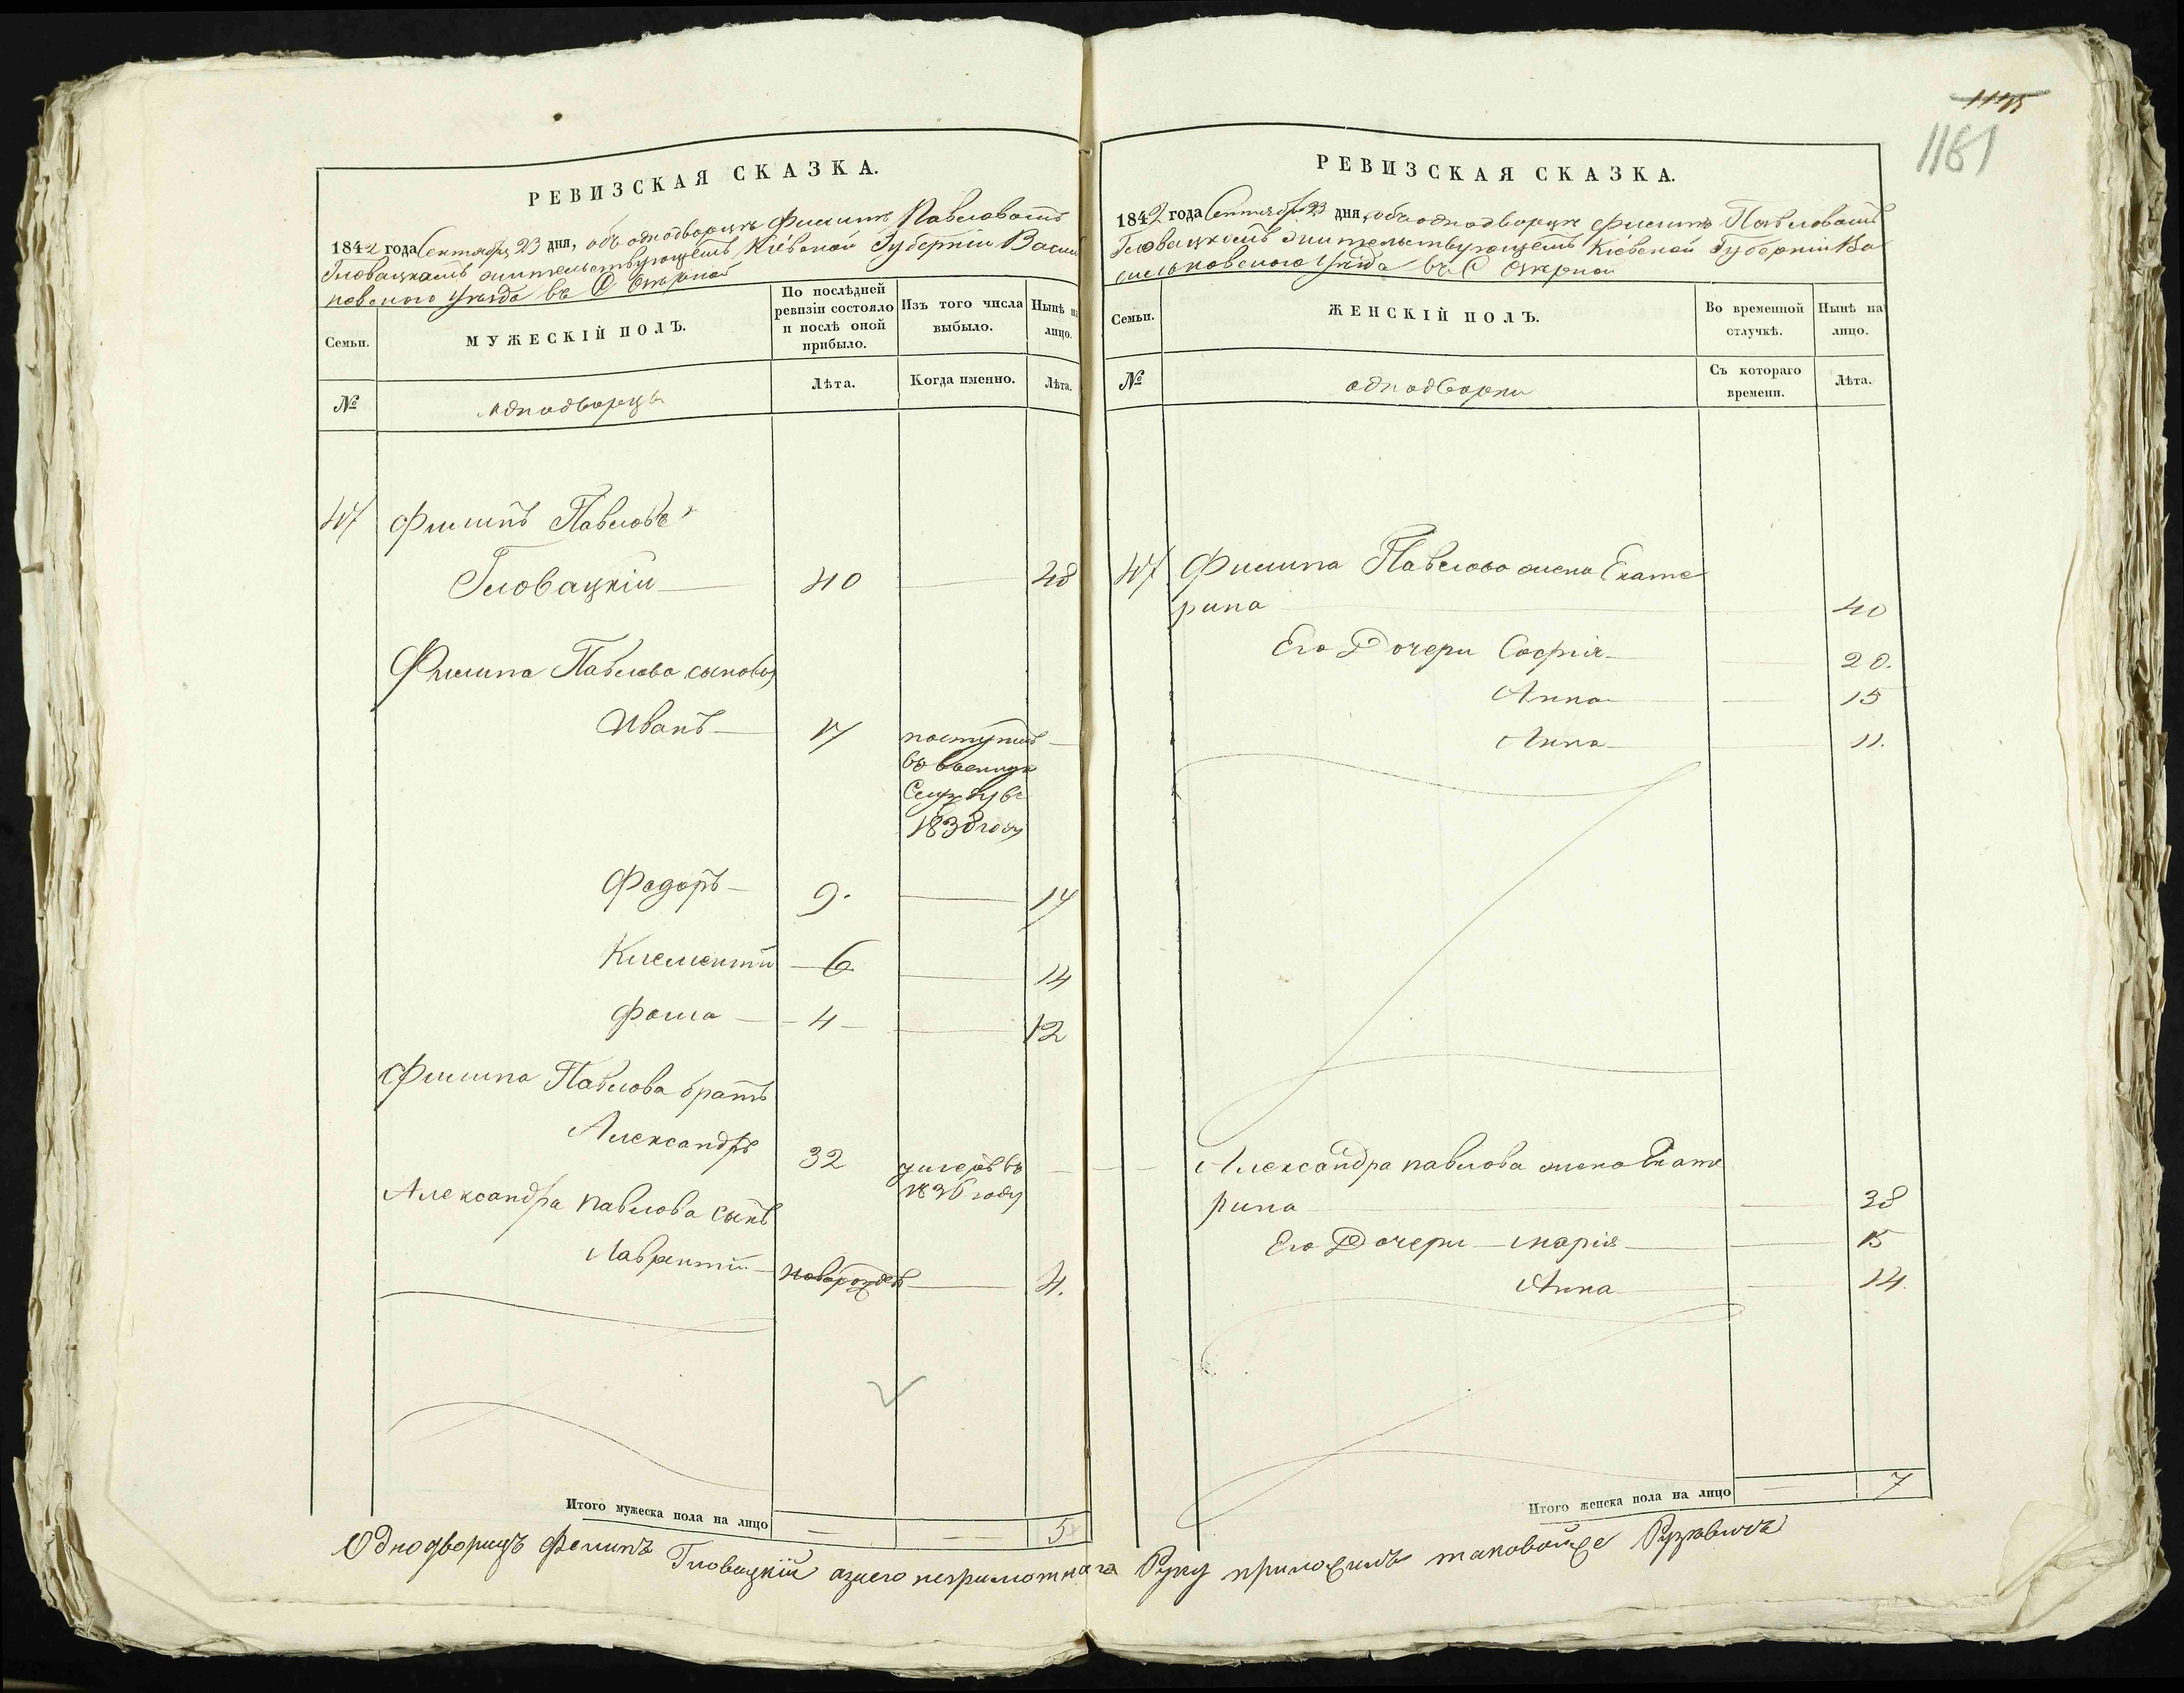 1175
1181
РЕВИЗСКАЯ СКАЗКА.
1842 года Сентября 23 дня, объ однодворцѣ Филипѣ Павловомъ
Гловацкомъ жительствующемъ Кіевской Губерніи Васил
ковского уѣзда въ С Озирной
Семьи.
МУЖЕСКІЙ ПОЛЪ.
По послѣдней ревизіи состояло и послѣ оной прибыло.
Изъ того числа выбыло.
Нынѣ на лицо.
№
однодворцы
Лѣта.
Когда именно.
Лѣта.
47 Филипъ Павловъ
Гловацкій 40 48
Филипа Павлова сыновья
Иванъ 17 поступилъ
въ военную
Службу въ
1838 году
Федоръ 9. 17
Климентій 6 14
Фома 4 12
Филипа Павлова братъ
Александръ 32 умеръ въ
1836 году
Александра павлова сынъ
Лаврентій новорожден 4.
Итого мужеска пола на лицо 5
РЕВИЗСКАЯ СКАЗКА.
1842 года Сентября 23 дня, объ однодворцѣ Филипѣ Павловомъ
Гловацкомъ жительствующемъ Кіевской Губерніи Ва
сильковского уѣзда въ С Озирной
Семьи.
ЖЕНСКІЙ ПОЛЪ.
Во временной отлучкѣ.
Нынѣ на лицо.
№
однодворки
Съ котораго времени.
Лѣта.
47 Филипа Павлова жена Екате
рина 40
Его Дочери Софія 20.
Анна 15
Анна 11.
Александра павлова жена Екате
рина 38
Его Дочери Марія 15
Анна 14.
Итого женска пола на лицо 7
Однодворецъ Филипъ Гловацкій а за его неграмотнаго Руку приложилъ таковойже